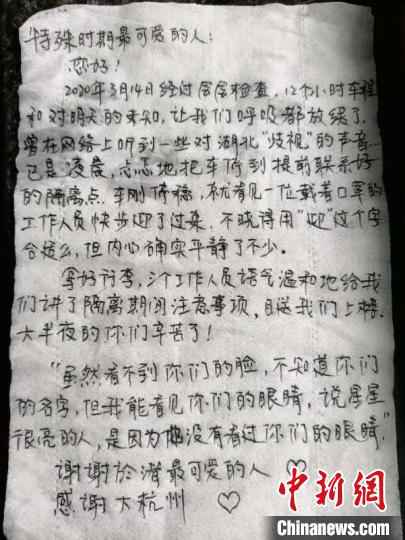 特殊时期最可爱的人：
您好！
2020年3月14日经过层层检查，12个小时车程
和对明天的未知，让我们呼吸都放缓了。
曾在网络上听到一些对湖北“歧视”的声音
已是凌晨，忐忑地把车停到提前联系好
的隔离点，车刚停稳，就看见一位戴着口罩的
工作人员快步迎了过来，不晓得用“迎”这个字
合适么，但内心确实平静了不少。
拿好行李，三个工作人员语气温和地给我
们讲了隔离期间注意事项，目送我们上楼。
大半夜的你们辛苦了！
“虽然看不到你们的脸，不知道你们
的名字，但我能看见你们的眼睛，说星星
很亮的人，是因为他没有看过你们的眼睛。”
谢谢於潜最可爱的人 ♡
感谢大杭州 ♡
中新网
Chinanews.com